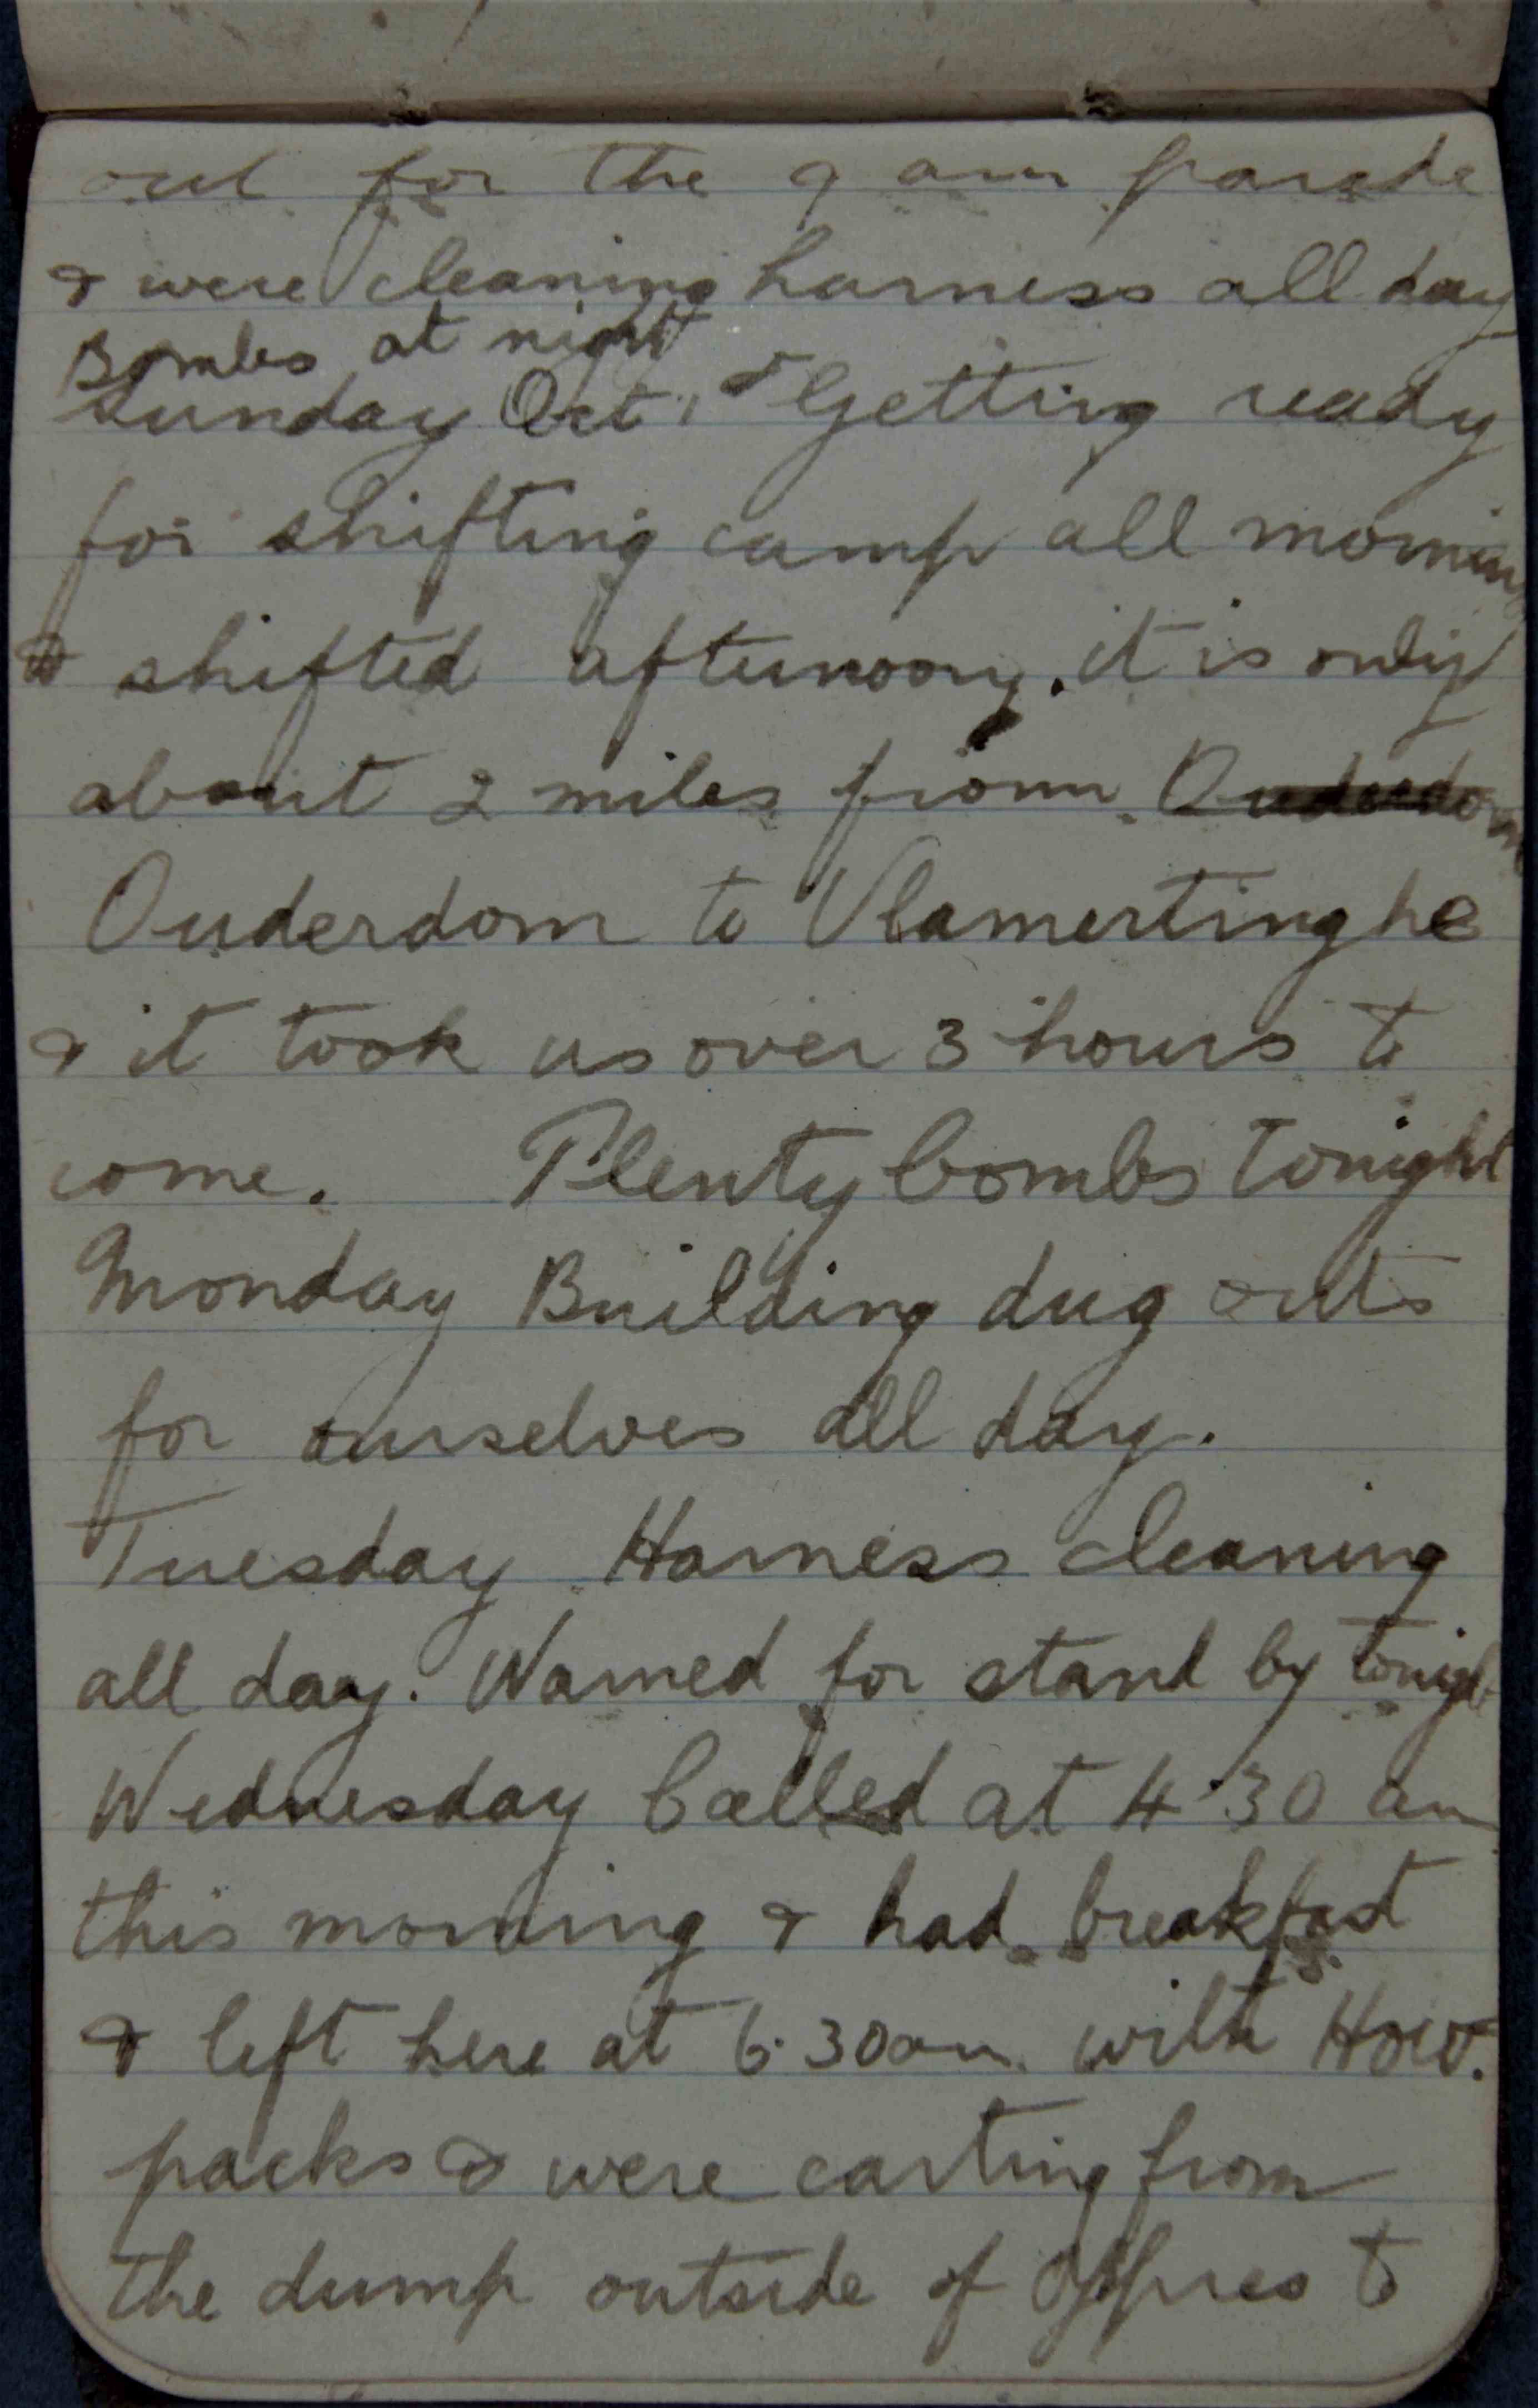 out for the 9 am parade
& were cleaning harness all day
Bombs at night
Sunday Oct 1st Getting ready
for shifting camp all morning
& shifted afternoon. it is only
about 2 miles from Ouderdom
Ouderdom to Vlamertinghe
& it took us over 3 hours to
come. Plenty bombs tonight
Monday Building dug outs
for ourselves all day.
Tuesday Harness cleaning
all day. Warned for stand by tonight
Wednesday Called at 4.30 am
this morning & had breakfast
& left here at 6.30 am with How.
packs & were carting from
the dump outside of Ypres to